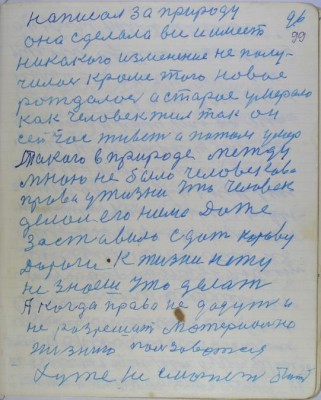 написал за природу
96
99
она сделала ви и имеет
никакого изменение не полу-
чилось кроме того новое
рождалося а старое умерало
как человек жил так он
сейчас живет а потом умер
Такого в природе между
мною не было человекова
права у жизни што человек
делал его нимо даже
заставило сдат корову
дороги. К жизни пожу
не знаеш што делат
А когда право не дадут и
не розрешат Материвально
жизнию ползоватся
хуже не сможет быт